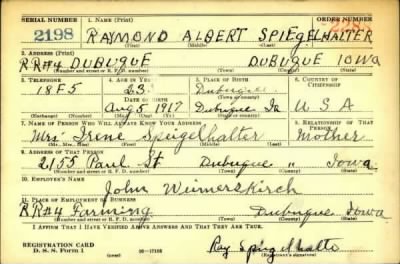 SERIAL NUMBER 1. NAME (Print) ORDER NUMBER
2198 RAYMOND ALBERT SPIEGELHALTER
(First) (Middle) (Last)
2. ADDRESS (Print)
RR#4 DUBUQUE DUBUQUE IOWA
(Number and street or R. F. D. number) (Town) (County) (State)
3. TELEPHONE 4. AGE IN YEARS 5. PLACE OF BIRTH 6. COUNTRY OF CITIZENSHIP
18F5 23 Dubuque
DATE OF BIRTH
Aug 5 1917 Dubuque Ia USA
7. NAME OF PERSON WHO WILL ALWAYS KNOW YOUR ADDRESS 8. RELATIONSHIP OF THAT PERSON
Mrs. Irene Speigelhalter Mother
(Mr., Mrs., Miss) (First) (Middle) (Last)
9. ADDRESS OF THAT PERSON
2155 Paul St Dubuque " Iowa
(Number and street or R. F. D. number) (Town) (County) (State)
10. EMPLOYER'S NAME
John Wiemerskirch
11. PLACE OF EMPLOYMENT OR BUSINESS
RR#4 Farming Dubuque Iowa
(Number and street or R. F. D. number) (Town) (County) (State)
I AFFIRM THAT I HAVE VERIFIED ABOVE ANSWERS AND THAT THEY ARE TRUE.
REGISTRATION CARD
D. S. S. Form 1 Ray Spiegelhalter
(Registrant's signature)